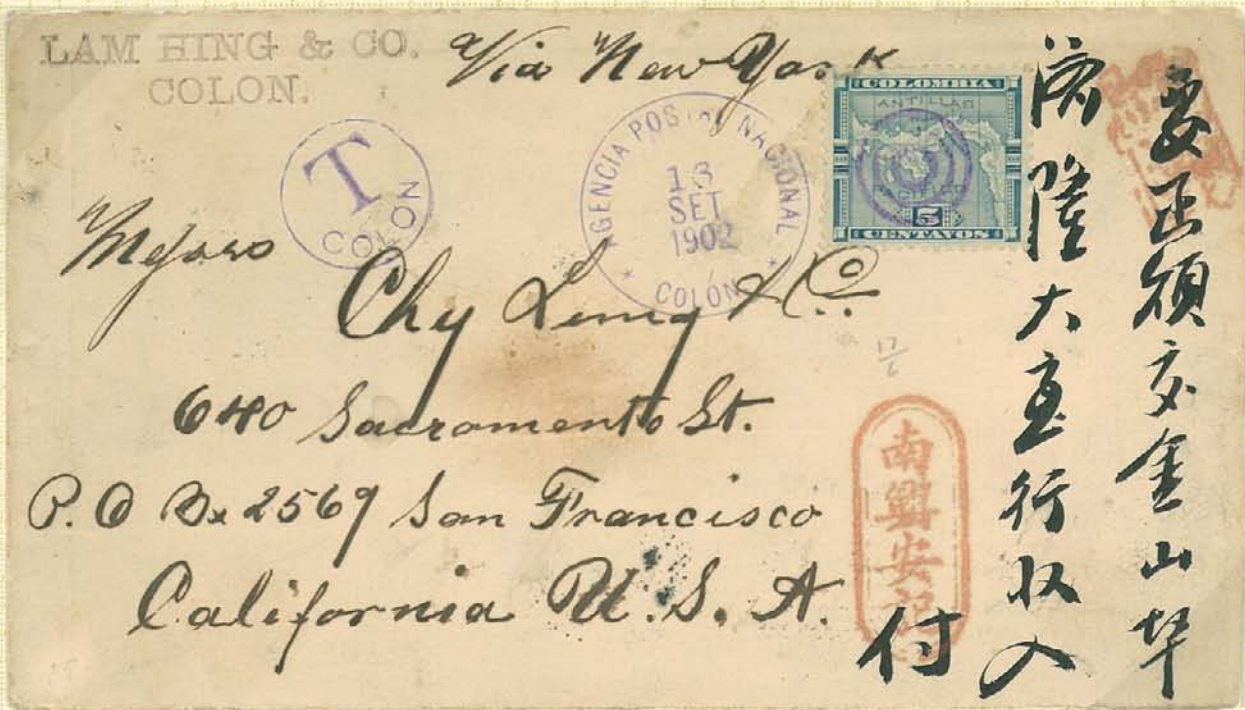 LAM HING & CO.
COLON.
Via New York
T
COLON
AGENCIA POSTAL NACIONAL
13
SET
1902
COLON
COLOMBIA
ANTILLAS
PACIFICO
5
CENTAVOS
Messrs
Chy Lung & Co.
640 Sacramento St.
P.O Bx 2569 San Francisco
California U.S.A.
要正煩交金山埠
濟隆大宝行收入
付
南興安記